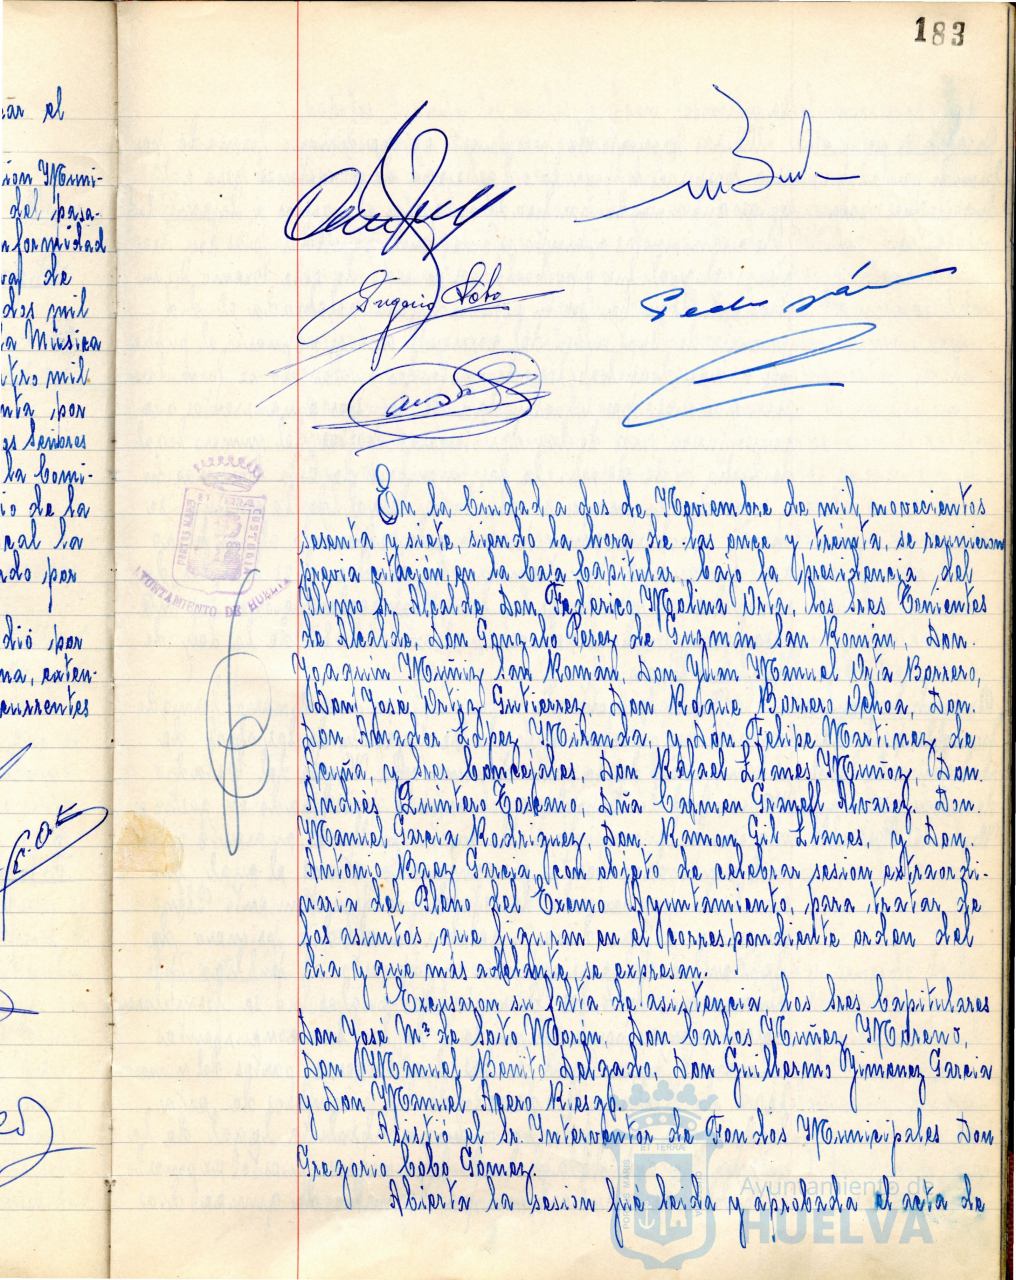 183
ear el
ion Muni-
del pasa-
nformidad
val de
dos mil
la Música
atro mil
nta por
os Señores
la Comi-
io de la
cal la
ndo por
dió por
na, exten-
currentes
Pedro
En la Ciudad a dos de Noviembre de mil novecientos
sesenta y siete, siendo la hora de las once y treinta, se reunieron
previa citación, en la Casa Capitular, bajo la Presidencia del
Iltmo Sr. Alcalde Don Federico Molina Orta, los Sres Tenientes
de Alcalde, Don Gonzalo Perez de Guzmán San Román, Don
Joaquín Muñiz San Román, Don Juan Manuel Orta Borrero,
Don José Ortiz Gutierrez, Don Roque Borrero Ochoa, Don
Don Amador López Miranda, y Don Felipe Martinez de
Acuña, y Sres Concejales, Don Rafael Llanes Muñoz, Don
Andrés Quintero Toscano, Dña Carmen Granell Alvarez, Don
Manuel Garcia Rodriguez, Don Ramon Gil Llanes, y Don
Antonio Baez Garcia, con objeto de celebrar sesion extraordi-
naria del Pleno del Excmo Ayuntamiento, para tratar de
los asuntos que figuran en el correspondiente orden del
día y que más adelante se expresan.
Excusaron su falta de asistencia, los Sres Capitulares
Don José Mª de Soto Morón, Don Carlos Muñoz Moreno,
Don Manuel Benito Delgado, Don Guillermo Gimenez Garcia
y Don Manuel Agero Riesgo.
Asistió el Sr. Interventor de Fondos Municipales Don
Gregorio Cobo Gómez.
Abierta la sesion fue leida y aprobada el acta de
AYUNTAMIENTO DE HUELVA
PORTUS MARIS ET TERRAE CUSTODIA
Ayuntamiento de
HUELVA